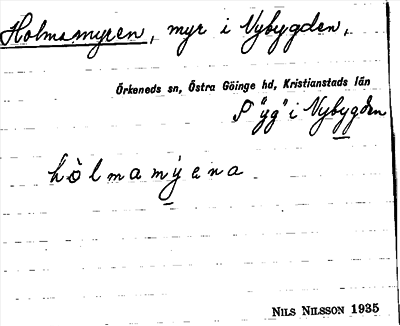 Holmamyren, myr i Nybygden,
Örkeneds sn, Östra Göinge hd, Kristianstads län
P "yg" i Nybygden
hòlmamýena
NILS NILSSON 1935